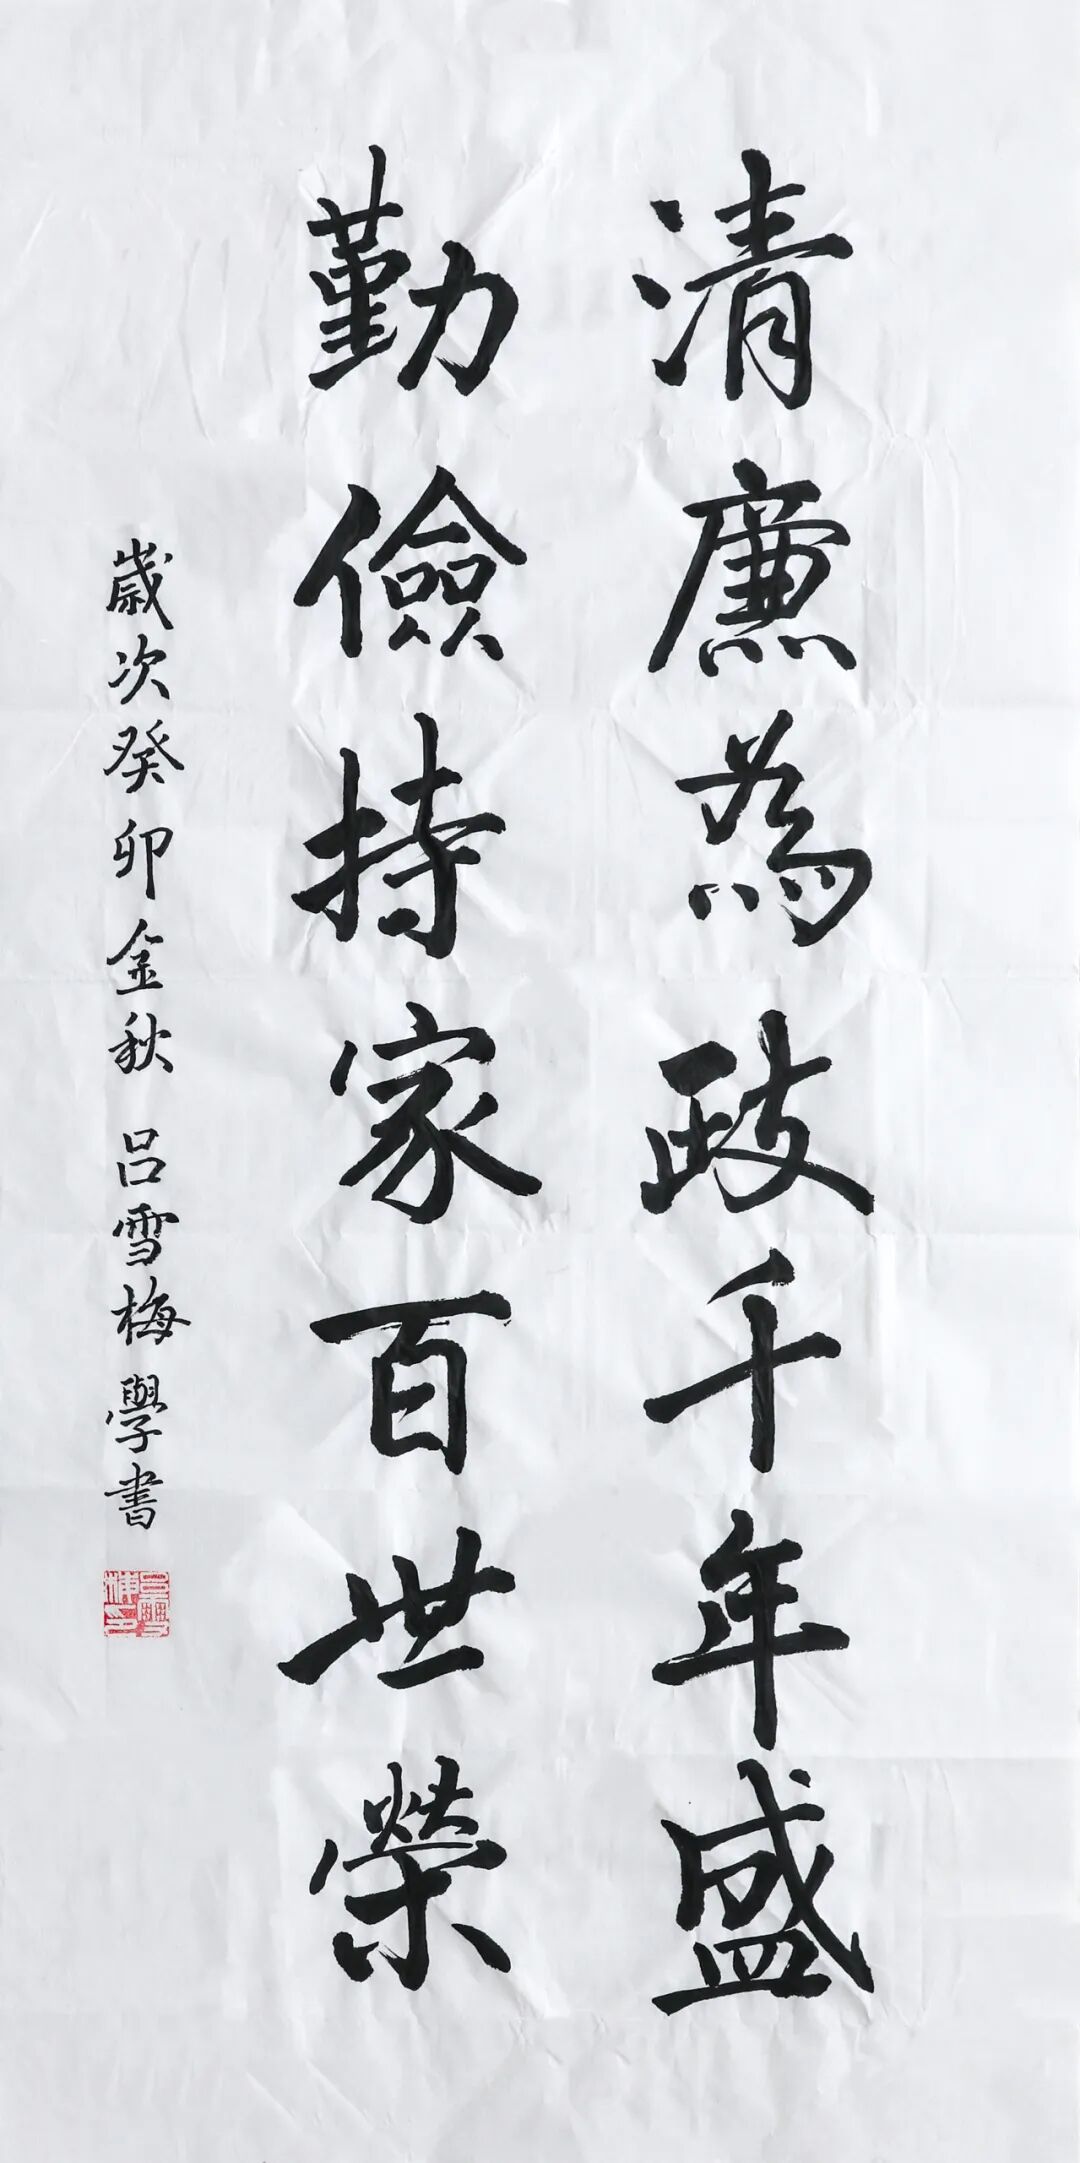 清廉為政千年盛
勤儉持家百世榮
歲次癸卯金秋 吕雪梅學書
吕雪梅印